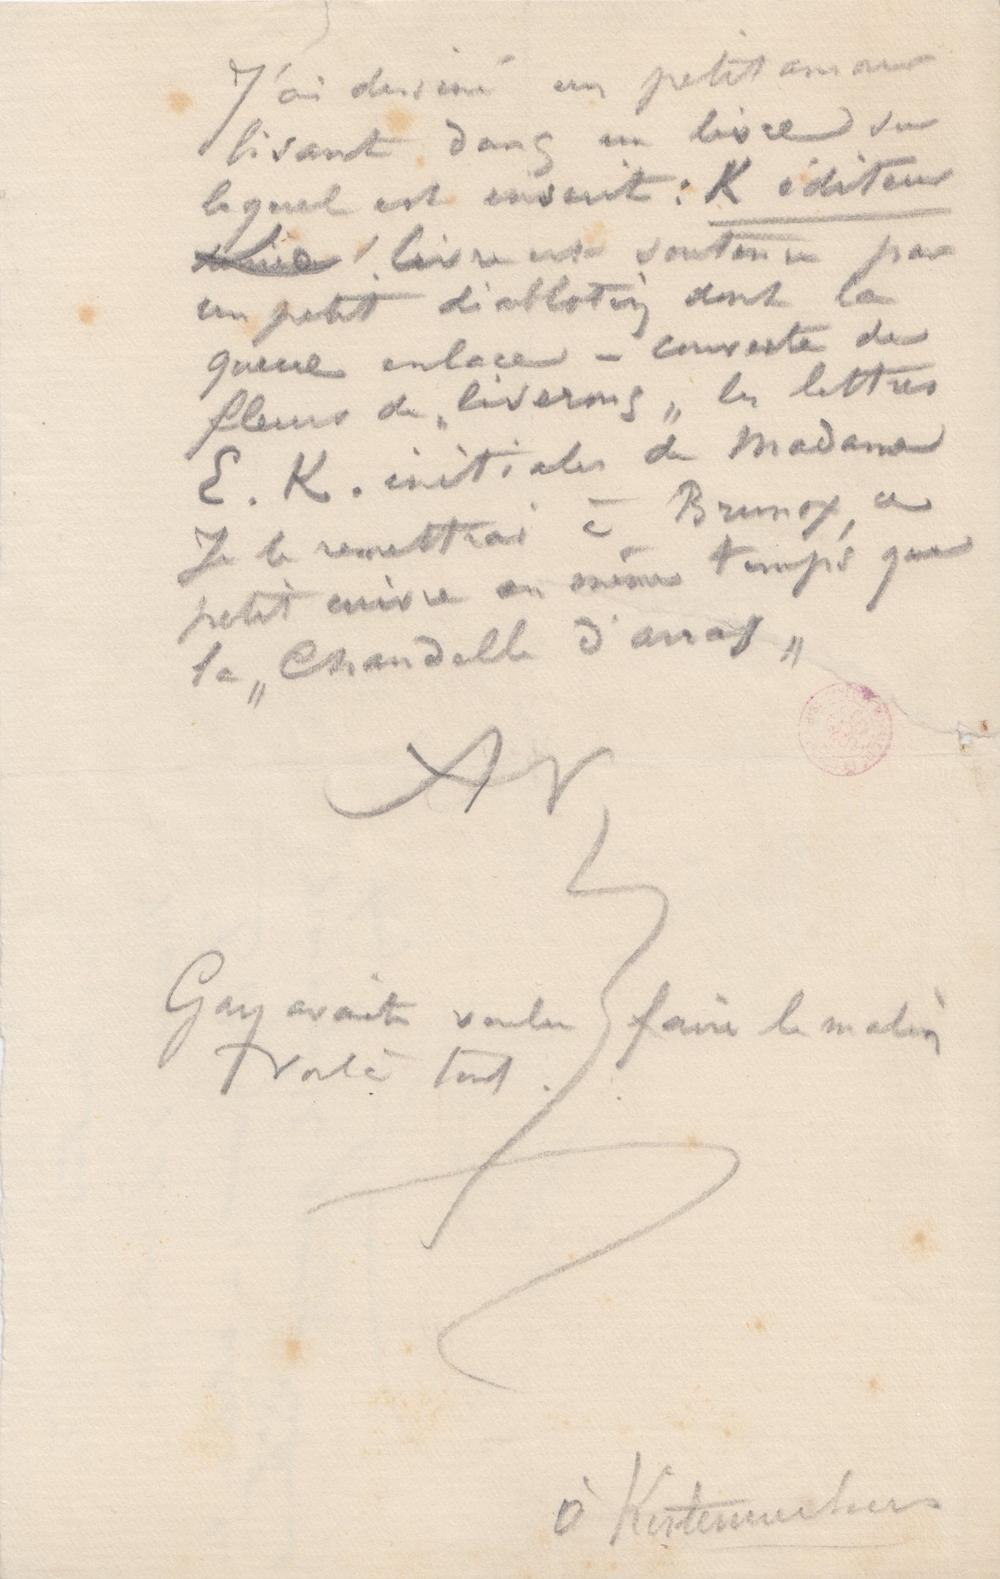 J'ai dessiné un petit amour
lisant dans un livre sur
lequel est inscrit : K éditeur
livre est soutenu par
un petit diablotin dont la
queue enlace – couverte de
fleurs de „liserons„ les lettres
E. K. initiales de Madame
Je le remettrai à Brunox, ce
petit cuivre en même temps que
la „Chandelle d'arras„
Gay avait voulu faire le malin
voilà tout.
à Kistemaeckers